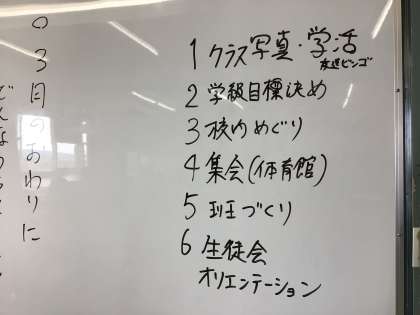 1 クラス写真・学活
友達ビンゴ
2 学級目標決め
3 校内めぐり
4 集会(体育館)
5 班づくり
6 生徒会
オリエンテーション
○3月のおわりに
どんなクラス